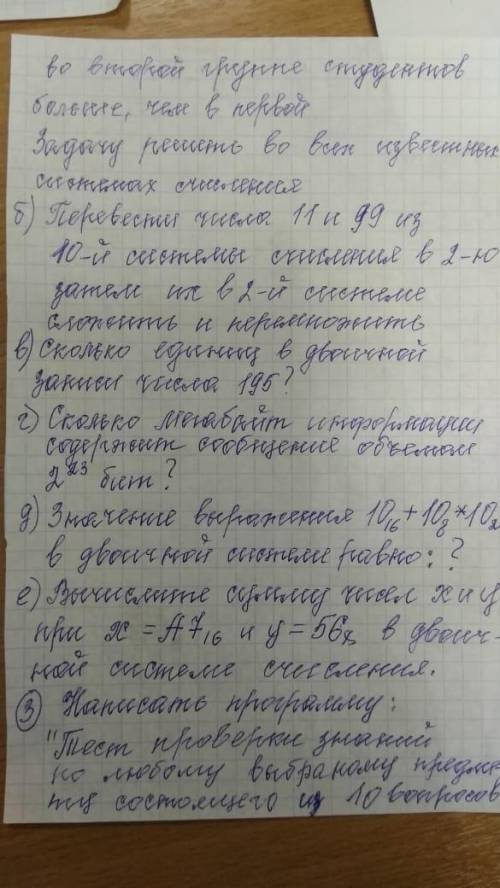 во второй группе студентов
больше, чем в первой
Задачу решить во всех известных
системах счисления
б) Перевести числа 11 и 99 из
10-й системы счисления в 2-ю
затем их в 2-й системе
сложить и перемножить
в) Сколько единиц в двоичной
записи числа 195?
г) Сколько мегабайт информации
содержит сообщение объемом
2²³ бит?
д) Значение выражения 10₁₆+10₈*10₂
в двоичной системе равно: ?
е) Вычислите сумму чисел x и y
при x = A7₁₆ и y = 56₈ в двоич-
ной системе счисления.
③ Написать программу:
"Тест проверки знаний
по любому выбраному предме
ту состоящего из 10 вопросов